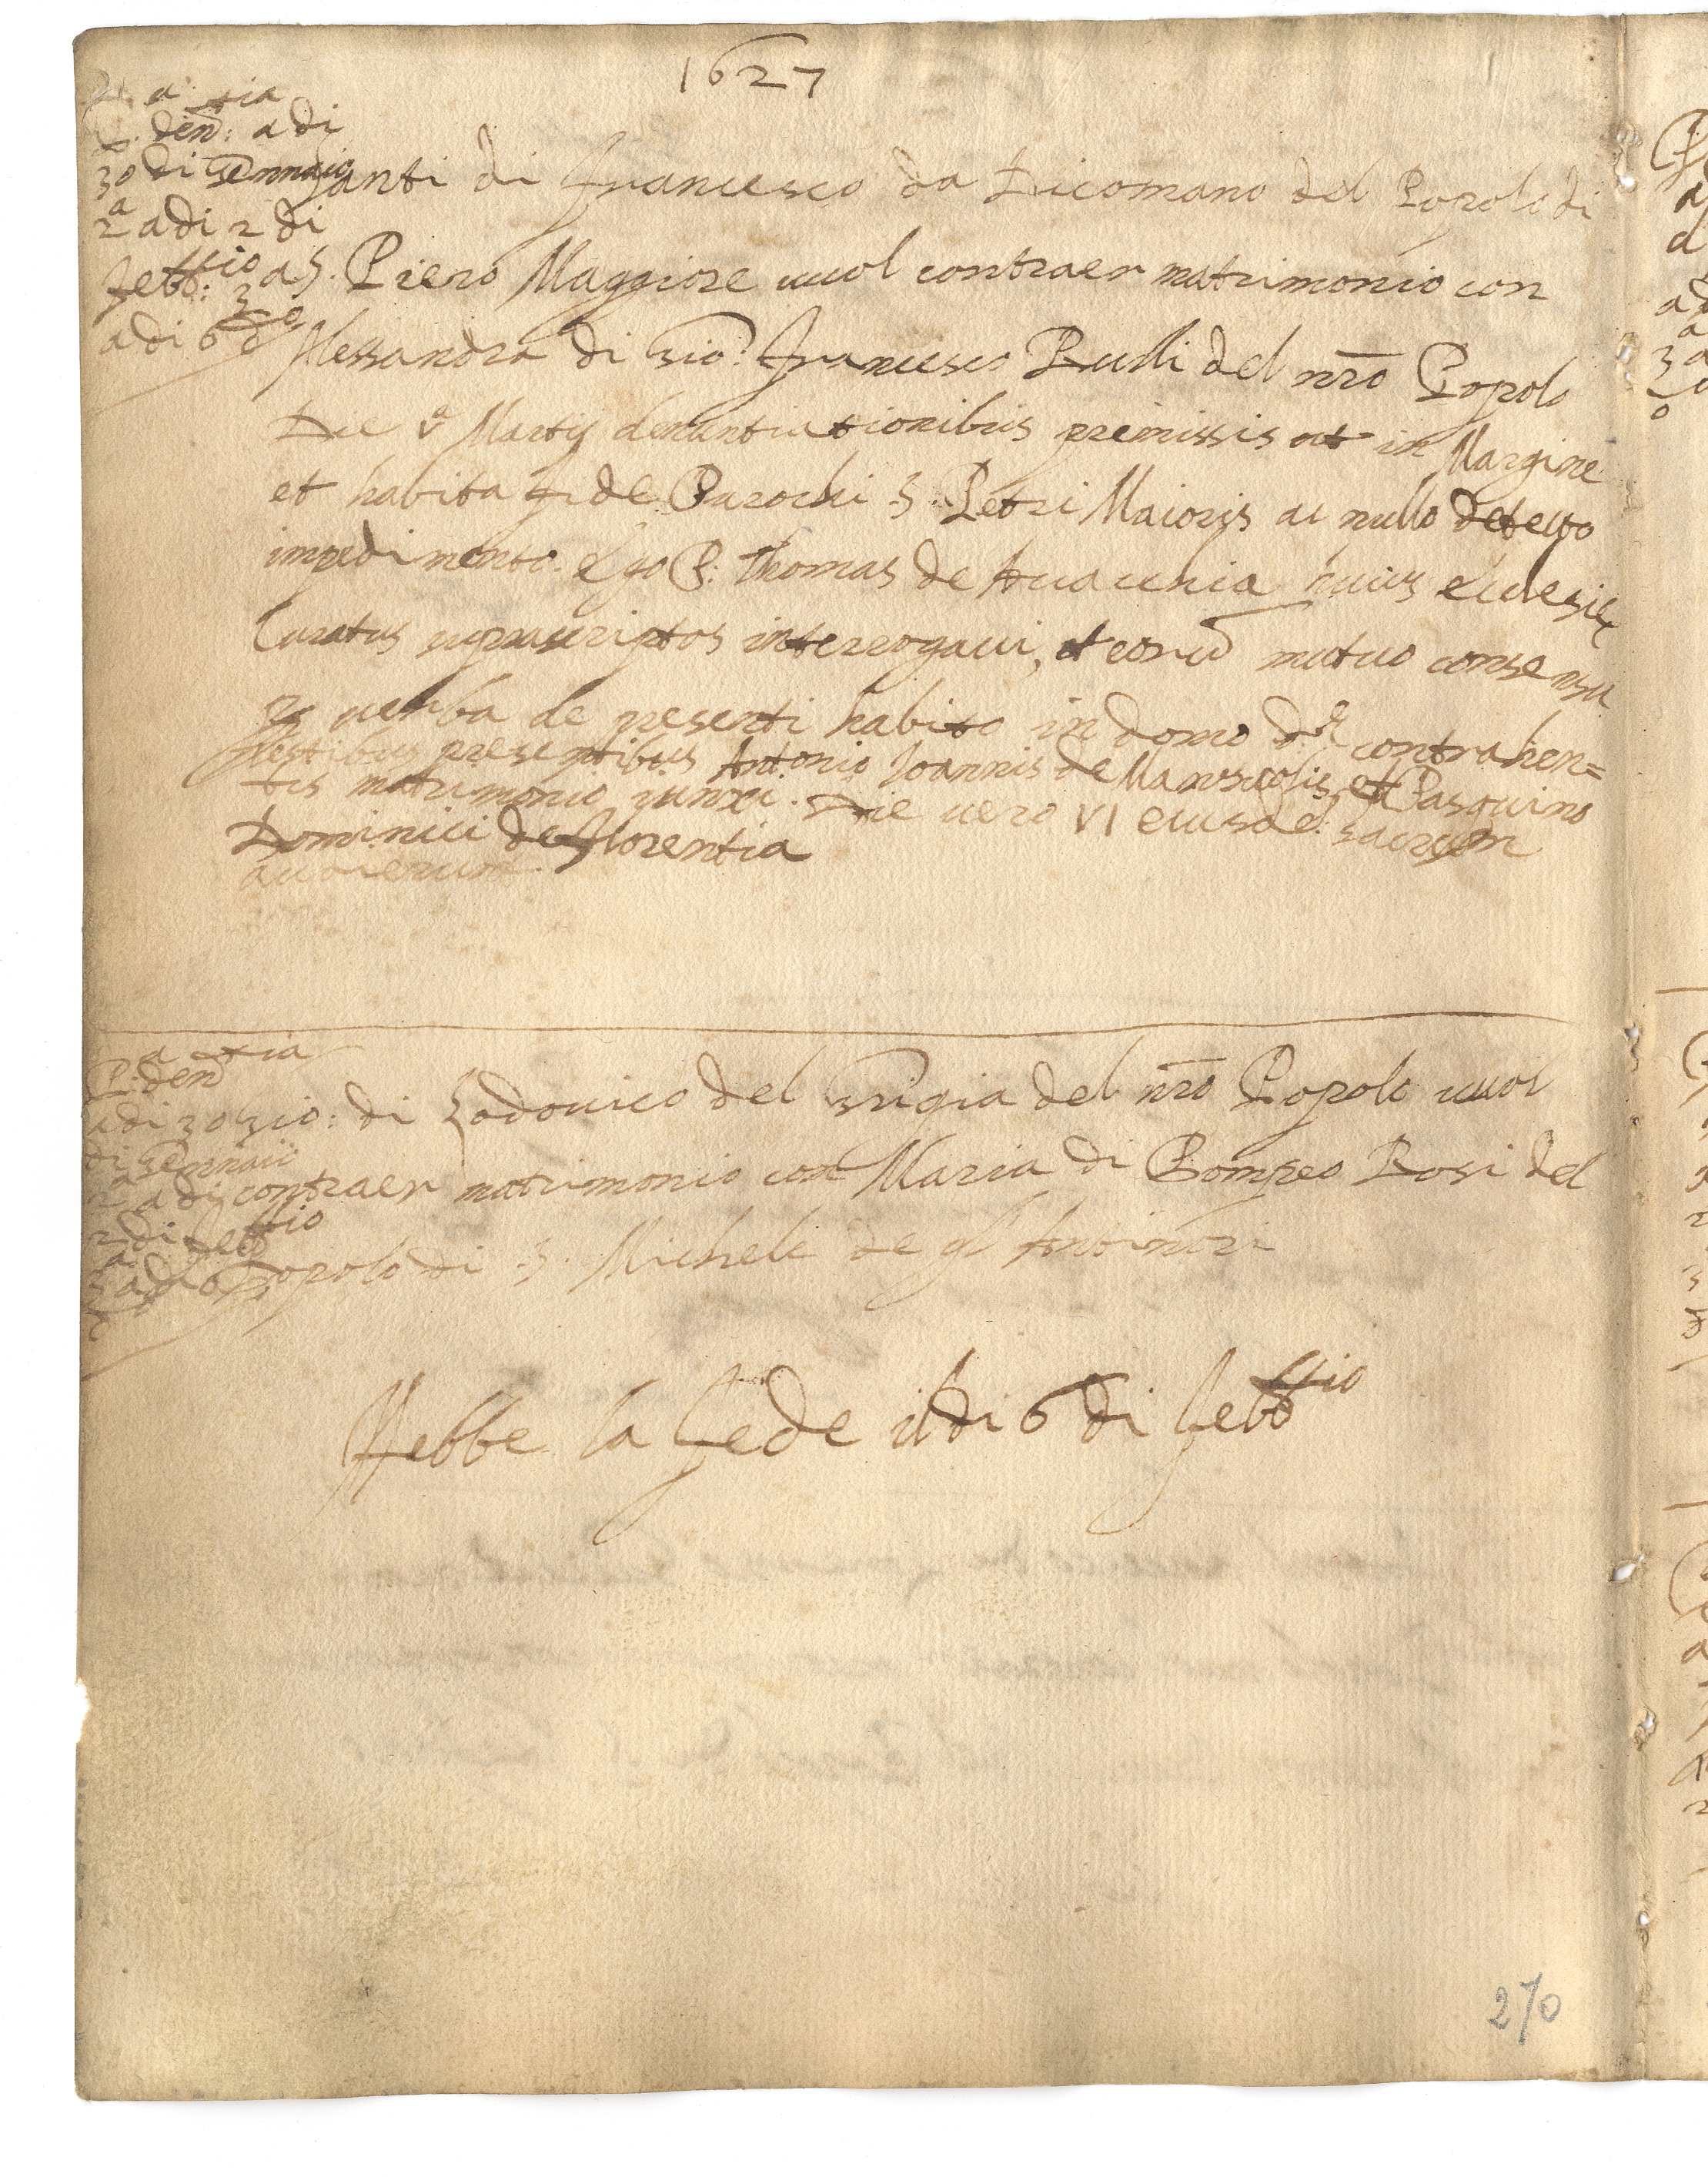 1627
P.a den:tia adi
30 di Gennaio
2a adi 2 di
febb:raio 3a
adi 6 do
Santi di Francesco da Dicomano del Popolo di
S. Piero Maggiore vuol contraer matrimonio con
Alessandra di Gio: Francesco Bulli del nro Popolo
Die va Martij denuntiationibus premissis ut in Margine
et habita fide Parochi S. Petri Maioris ac nullo detecto
impedimento. Ego P. Thomas de huius ecclesie
Curatus suprascriptos interrogaui, et eorum mutuo consensu
per uerba de presenti habito in domo d.e contrahen=
testibus presentibus Antonio Ioannis de et Pasquino
tis matrimonio iunxi. Die uero VI eiusde. sacrum
Dominici de Florentia
P.a den:tia
adi 30
di Gennaio
2a adi
2 di febb:raio
3a adi 6
Gio: di Lodouico del Grigia del nro Popolo vuol
contraer matrimonio con Maria di Pompeo Bosi del
Popolo di S. Michele de gl' Antinori
Hebbe la fede il di 6 di febb:raio
270